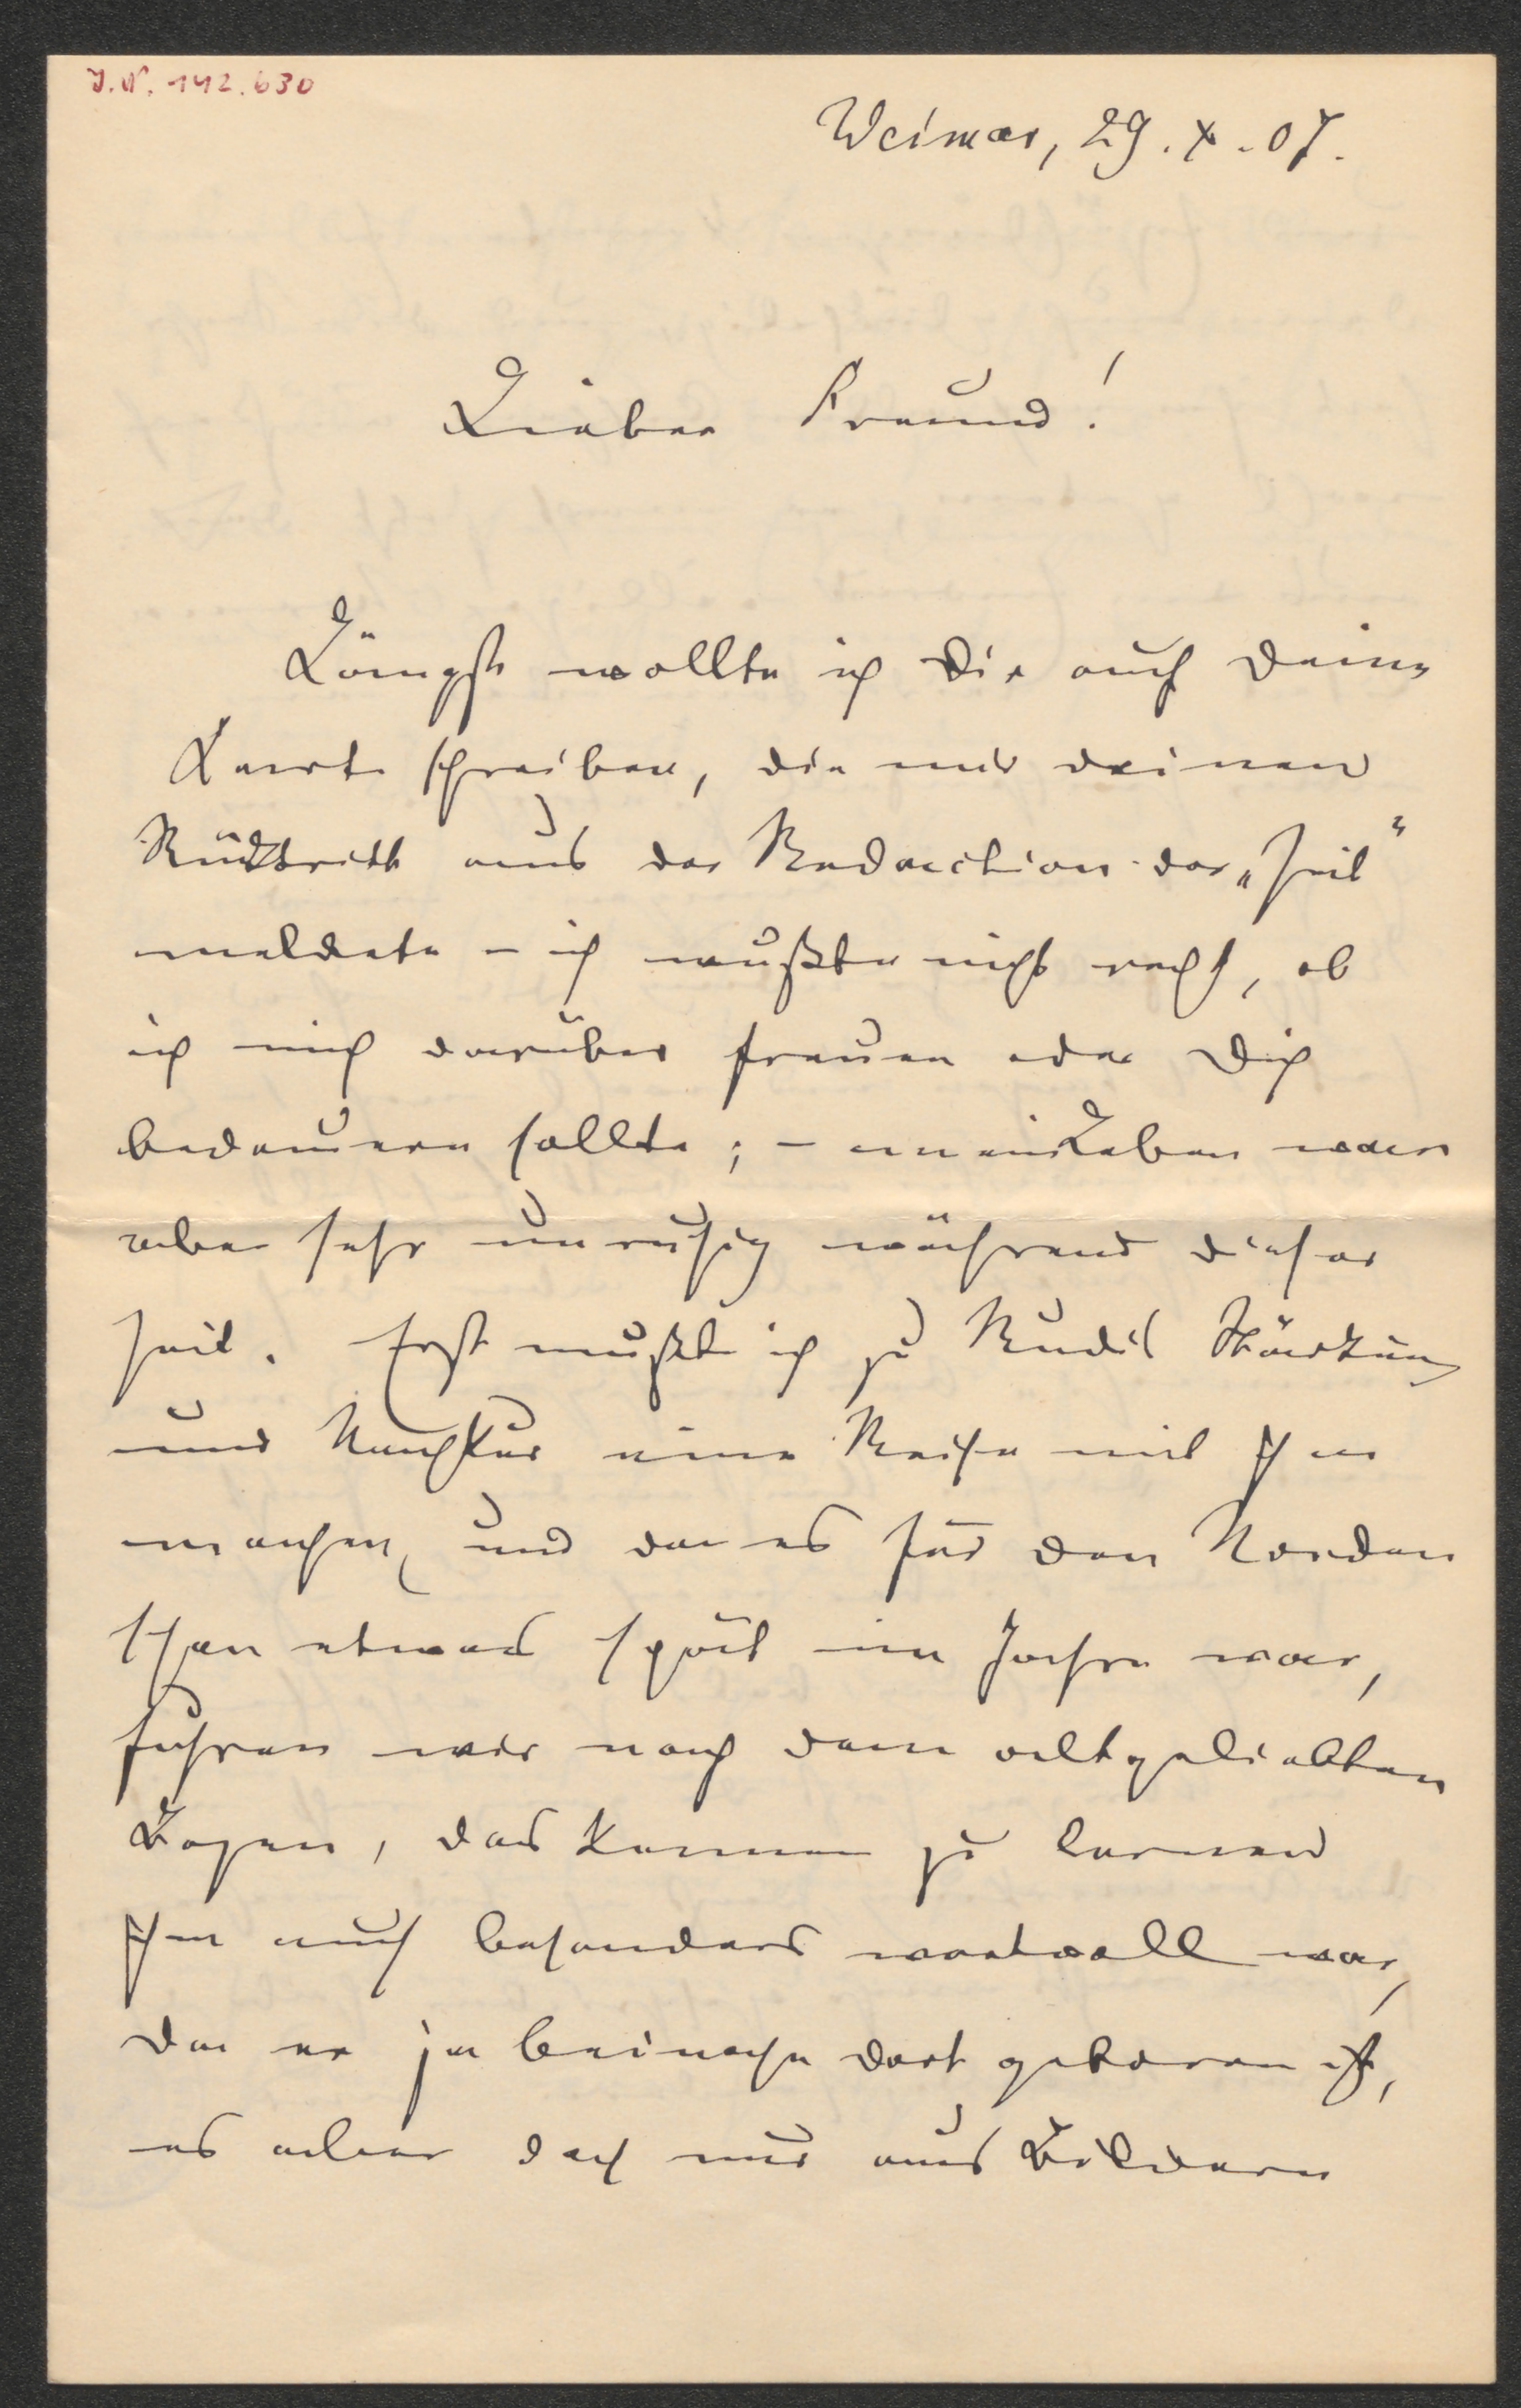 J.N. 142.630
Weimar, 29. X. 07.
Lieber Freund!
Längst wollte ich Dir auf Deine
Karte schreiben, die mir Deinen
Rücktritt aus der Redaction der „Zeit“
meldete – ich wußte nicht recht, ob
ich mich darüber freuen oder Dich
bedauern sollte; – mein Leben war
aber sehr unruhig während dieser
Zeit. Erst mußte ich zu Rudis Stärkung
und Nachkur eine Reise mit ihm
machen, und da es für den Norden
schon etwas spät im Jahre war,
fuhren wir nach dem altgeliebten
Bozen, das kennen zu lernen
ihm auch besonders wertvoll war,
da er ja beinahe dort geboren ist,
es aber doch nur aus Bildern